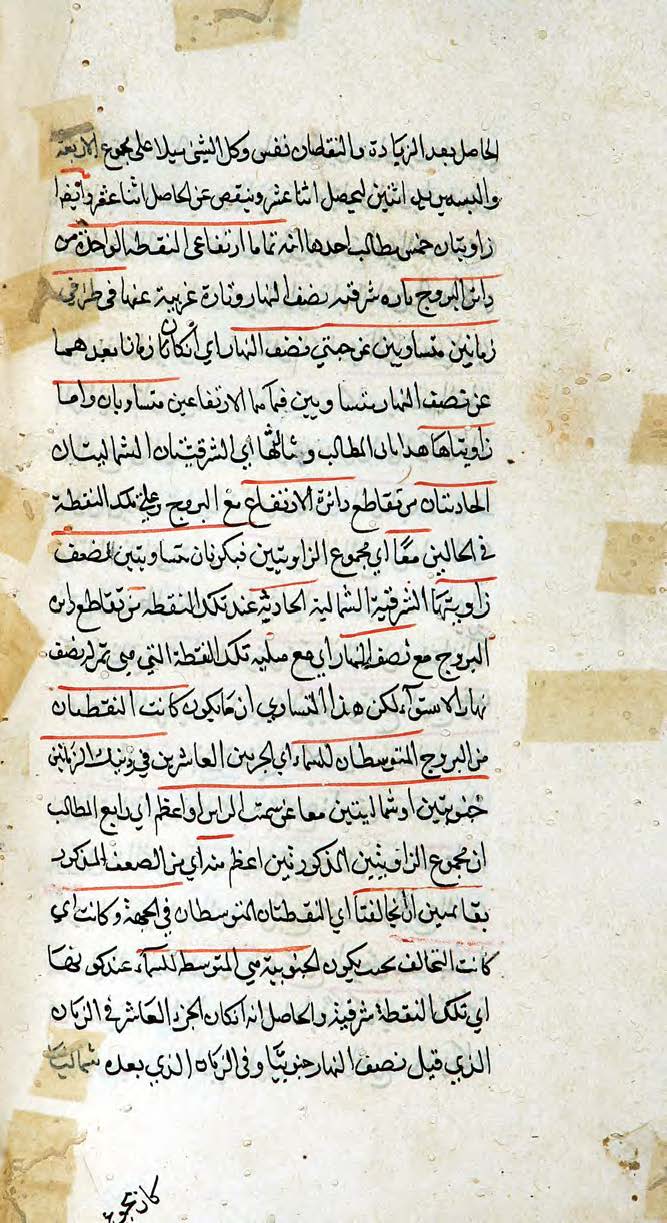 الحاصل بعد الزيادة والنقصان نفس وكل الشيئ ميلا على مجموع الاربعة
اثنين ليحصل اثنا عشر وينقص عن الحاصل اثنا عشر وايضا
زاويتان خمس مطالب احدها انه تماما ارتفاعي النقطة الواحدة من
دائرة البروج تارة شرقية نصف النهار وتارة غربية عنها في طرفي
زمانين متساويين عن جنبتي نصف النهار اي انكانا زمانا بعدهما
عن نصف النهار متساويين فتماما الارتفاعين متساويان واما
زاويتاها هذا المطالب وثالثها اي الشرقيتان الشماليتان
الحادثتان من تقاطع دائرة الارتفاع مع البروج على تلك النقطة
في الحالين معا اي مجموع الزاويتين فيكونان متساويتين لضعف
زاويتها الشرقية الشمالية الحادثة عند تلك النقطة من تقاطع دائرة
البروج مع نصف النهار اي مع ميلية تلك النقطة التي هي تمر بنصف
نهار الاستوآء لكن هذا التساوي انما يكون كانت النقطتان
من البروج المتوسطان للسماء اي الجزئين العاشرين في ذينك الزمانين
جنوبيتين او شماليتين معا عن سمت الراس او اعظم اي رابع المطالب
ان مجموع الزاويتين المذكورتين اعظم منه اي من الضعف المذكور
بقائمتين ان تخالفتا اي النقطتان المتوسطان في الجهة وكانت اي
كانت التخالف بحيث يكون الجنوبية هي المتوسط للسمآء عند كونها
اي تلك النقطة شرقية والحاصل انه انكان الجزء العاشر في الزمان
الذي قبل نصف النهار جنوبيا وفي الزمان الذي بعده شماليا
كان مجموع